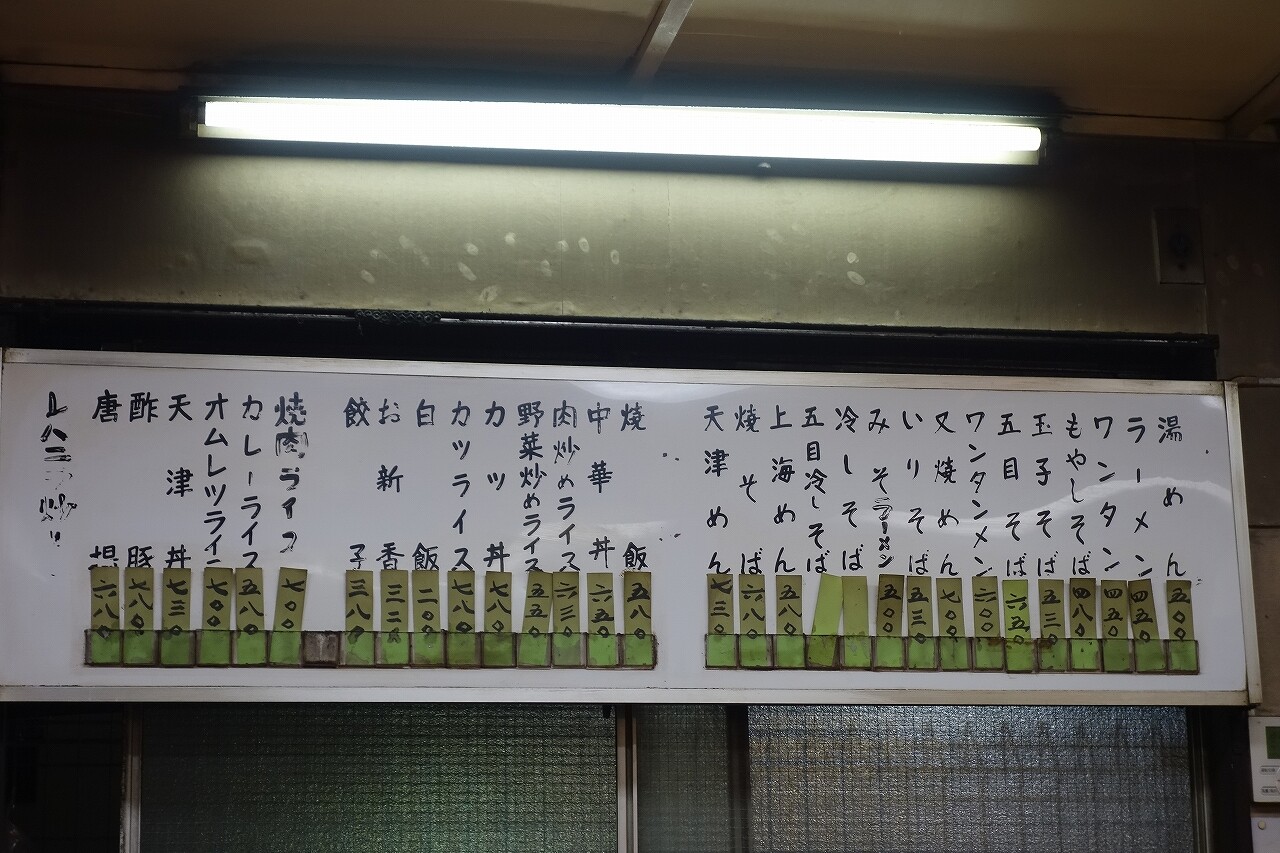 湯めん 五〇〇
ラーメン 四五〇
ワンタン 四五〇
もやしそば 四八〇
玉子そば 五三〇
五目そば 六五〇
ワンタンメン 六〇〇
叉焼めん 七〇〇
いりそば 五三〇
みそラーメン 五〇〇
冷しそば
五目冷しそば
上海めん 五八〇
焼そば 六八〇
天津めん 七三〇
焼飯 五八〇
中華丼 六五〇
肉炒めライス 六三〇
野菜炒めライス 五五〇
カツ丼 七八〇
カツライス 七八〇
白飯 二〇〇
お新香
餃子 三八〇
焼肉ライス 七〇〇
カレーライス 五八〇
オムレツライス 七〇〇
天津丼 七三〇
酢豚 七八〇
唐揚 六八〇